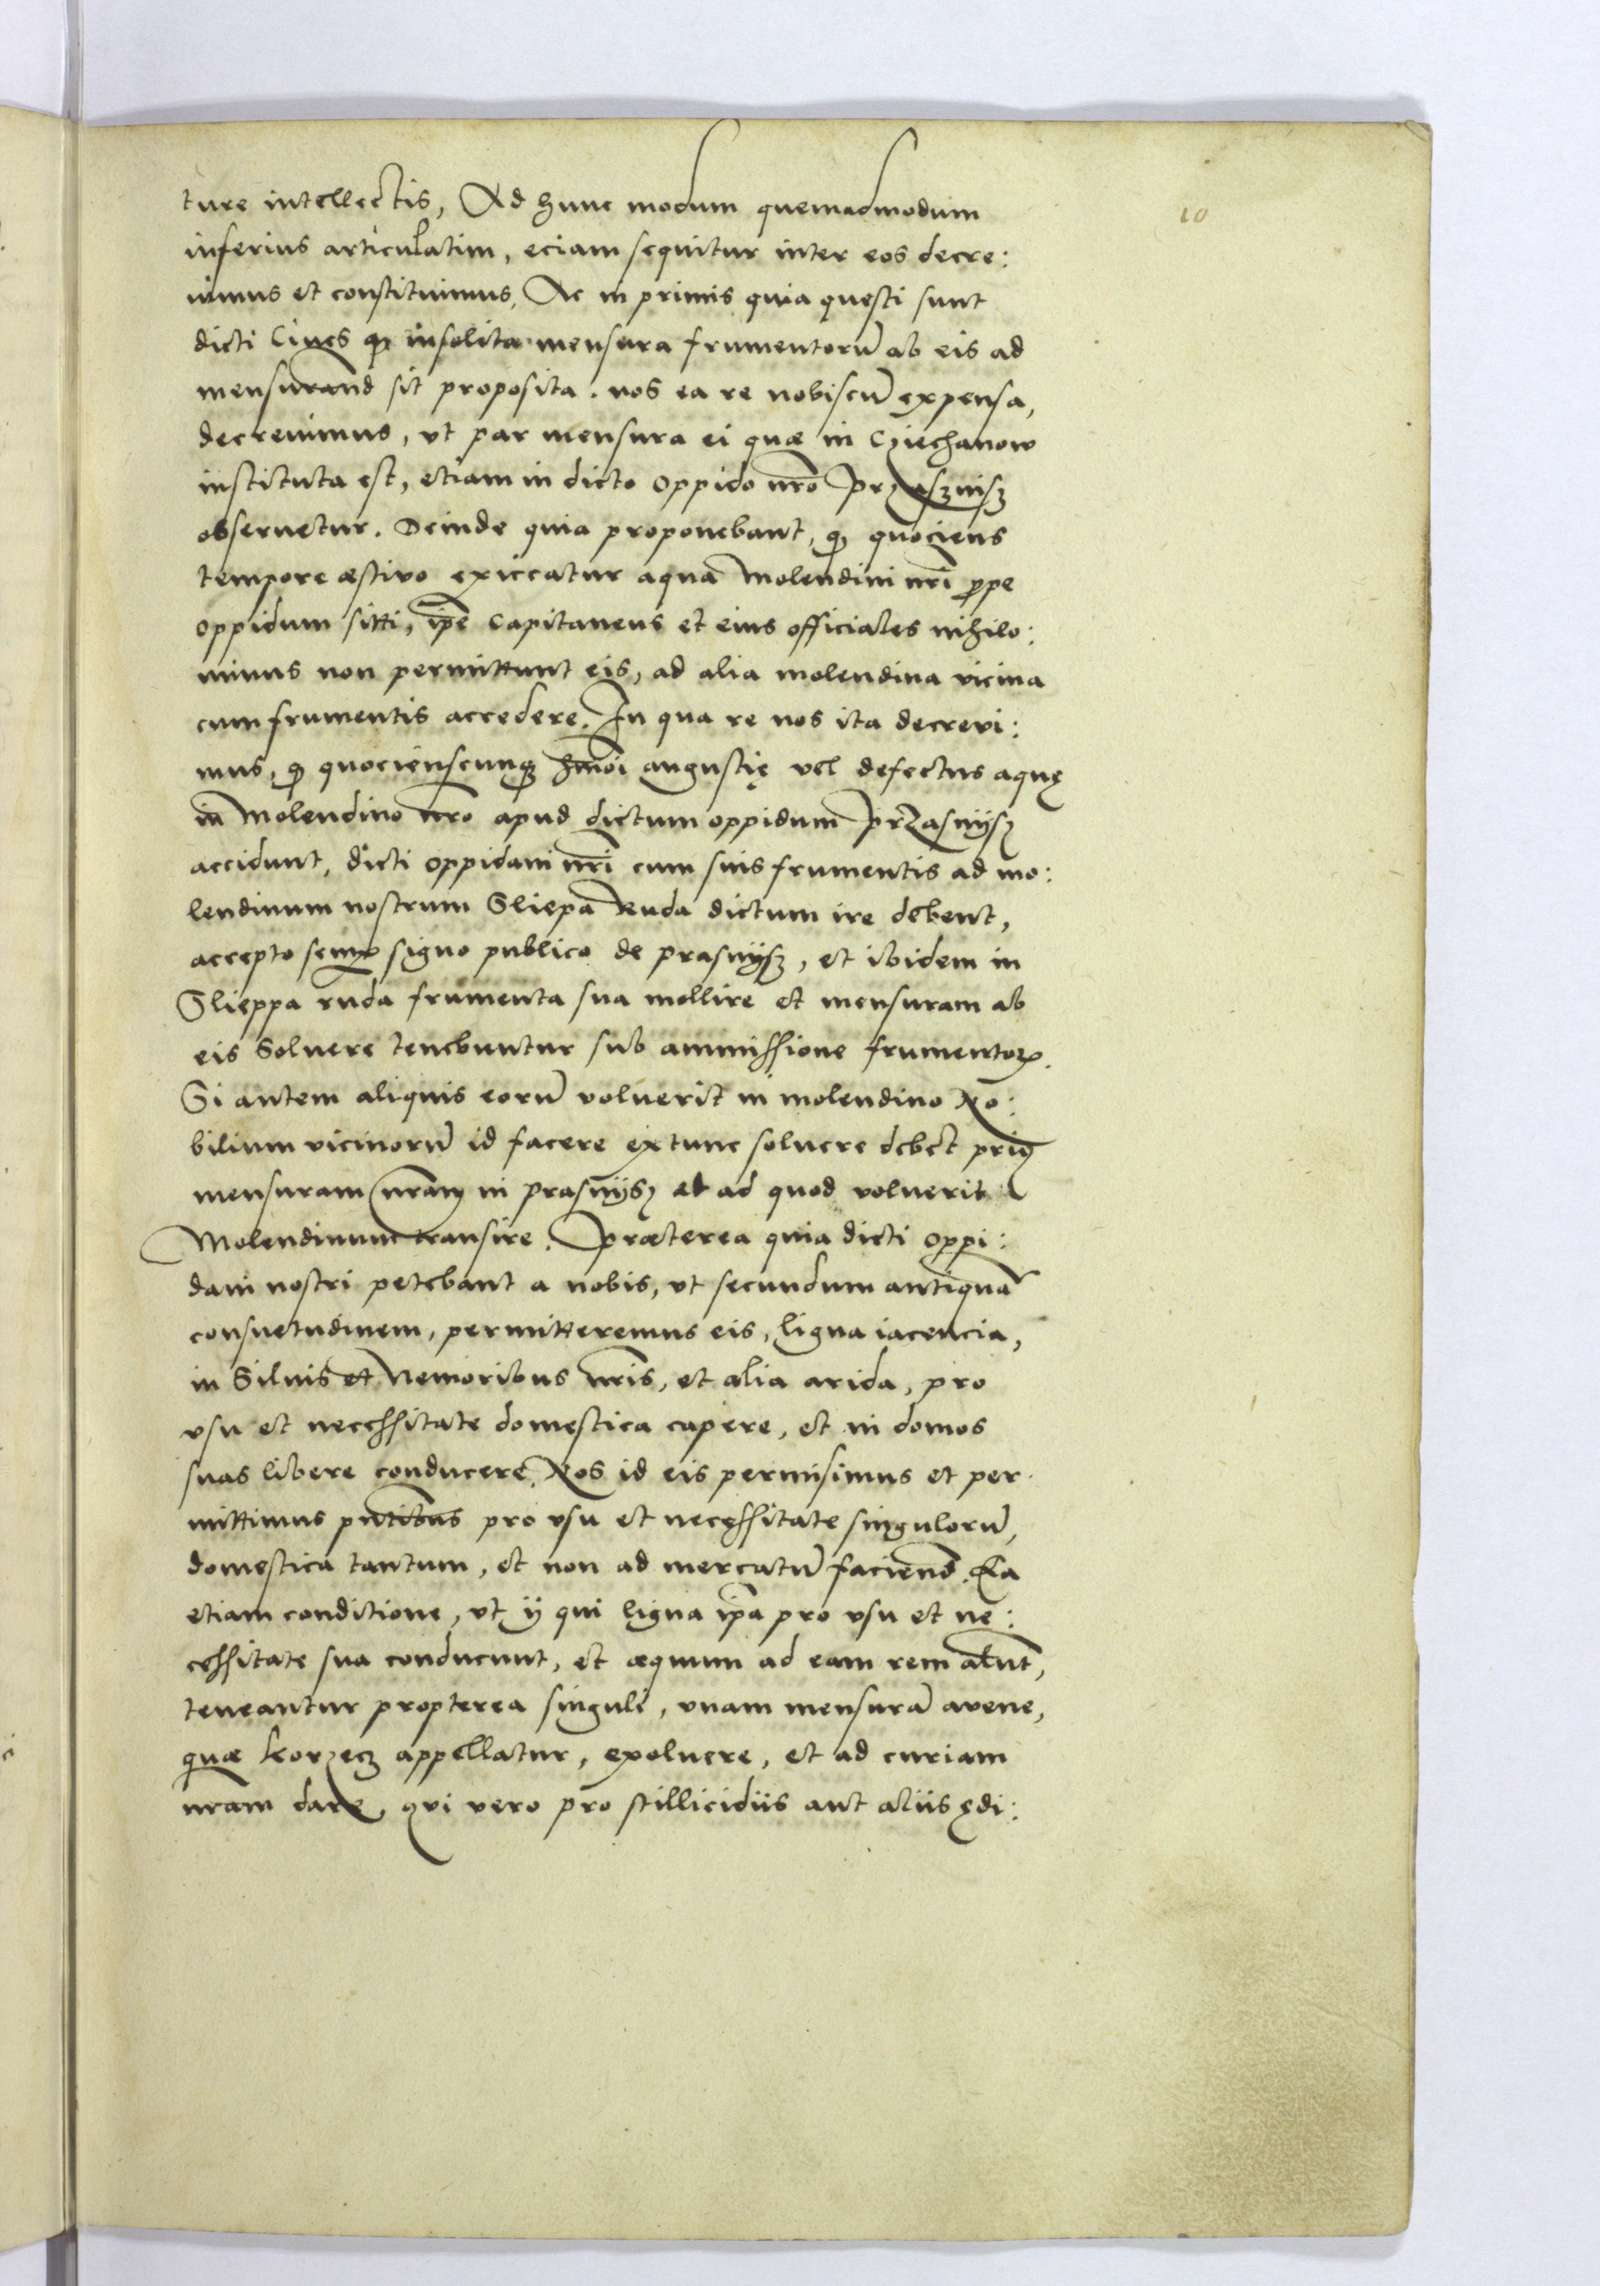 10
ture intellectis, Ad hunc modum quemadmodum
inferius articulatim, eciam sequitur inter eos decre:
uimus et constituimus, Ac in primis quia questi sunt
dicti Ciues qꝫ insolita mensura frumentorū ab eis ad
mensurand sit proposita. nos ea re nobiscū expensa,
decreuimus, vt par mensura ei quæ in Cziechanow
instituta est, etiam in dicto oppido nr̄o Przasznisz
obseruetur. Deinde quia proponebant, qꝫ quociens
tempore æstiuo exiccatur aqua Molendini nr̄i ꝓpe
oppidum sitti, ip̄e Capitaneus et eius officiales nihilo:
minus non permittunt eis, ad alia molendina vicina
cum frumentis accedere. In qua re nos ita decrevi:
mus, qꝫ quocienscunqꝫ hmōi angustię vel defectus aquę
in Molendino nr̄o apud dictum oppidum Przasnÿsz
accidunt, dicti oppidani nr̄i cum suis frumentis ad mo:
lendinum nostrum Sliepa Ruda dictum ire debent,
accepto semꝑ signo publico de prasnÿsz, et ibidem in
Slieppa ruda frumenta sua mollire et mensuram ab
eis Soluere tenebuntur sub ammissione frumentoꝝ.
Si autem aliquis eorū voluerit in molendino No:
bilium vicinorū id facere extunc soluere debet priꝰ
mensuram nr̄am in prasnÿsz et ad quod voluerit
Molendinum transire. Præterea quia dicti oppi:
dani nostri petebant a nobis, vt secundum antiquā
consuetudinem, permitteremus eis, ligna iacencia,
in Siluis et Nemoribus nr̄is, et alia arida, pro
vsu et necessitate domestica capere, et in domos
suas libere conducere. Nos id eis permisimus et per
mittimus pn̄tibus pro vsu et necessitate singulorū,
domestica tantum, et non ad mercatū faciend. Ea
etiam conditione, vt ÿ qui ligna ip̄a pro vsu et ne:
cessitate sua conducunt, et æquum ad eam rem alūt,
teneantur propterea singuli, vnam mensurā avene,
quæ korzecz appellatur, exoluere, et ad curiam
nr̄am dare, qui vero pro stillicidiis aut aliis ędi: